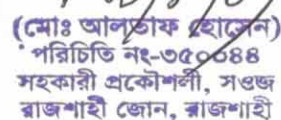 (মোঃ আলতাফ হোসেন)
পরিচিতি নং-৩৫০০৪৪
সহকারী প্রকৌশলী, সওজ
রাজশাহী জোন, রাজশাহী